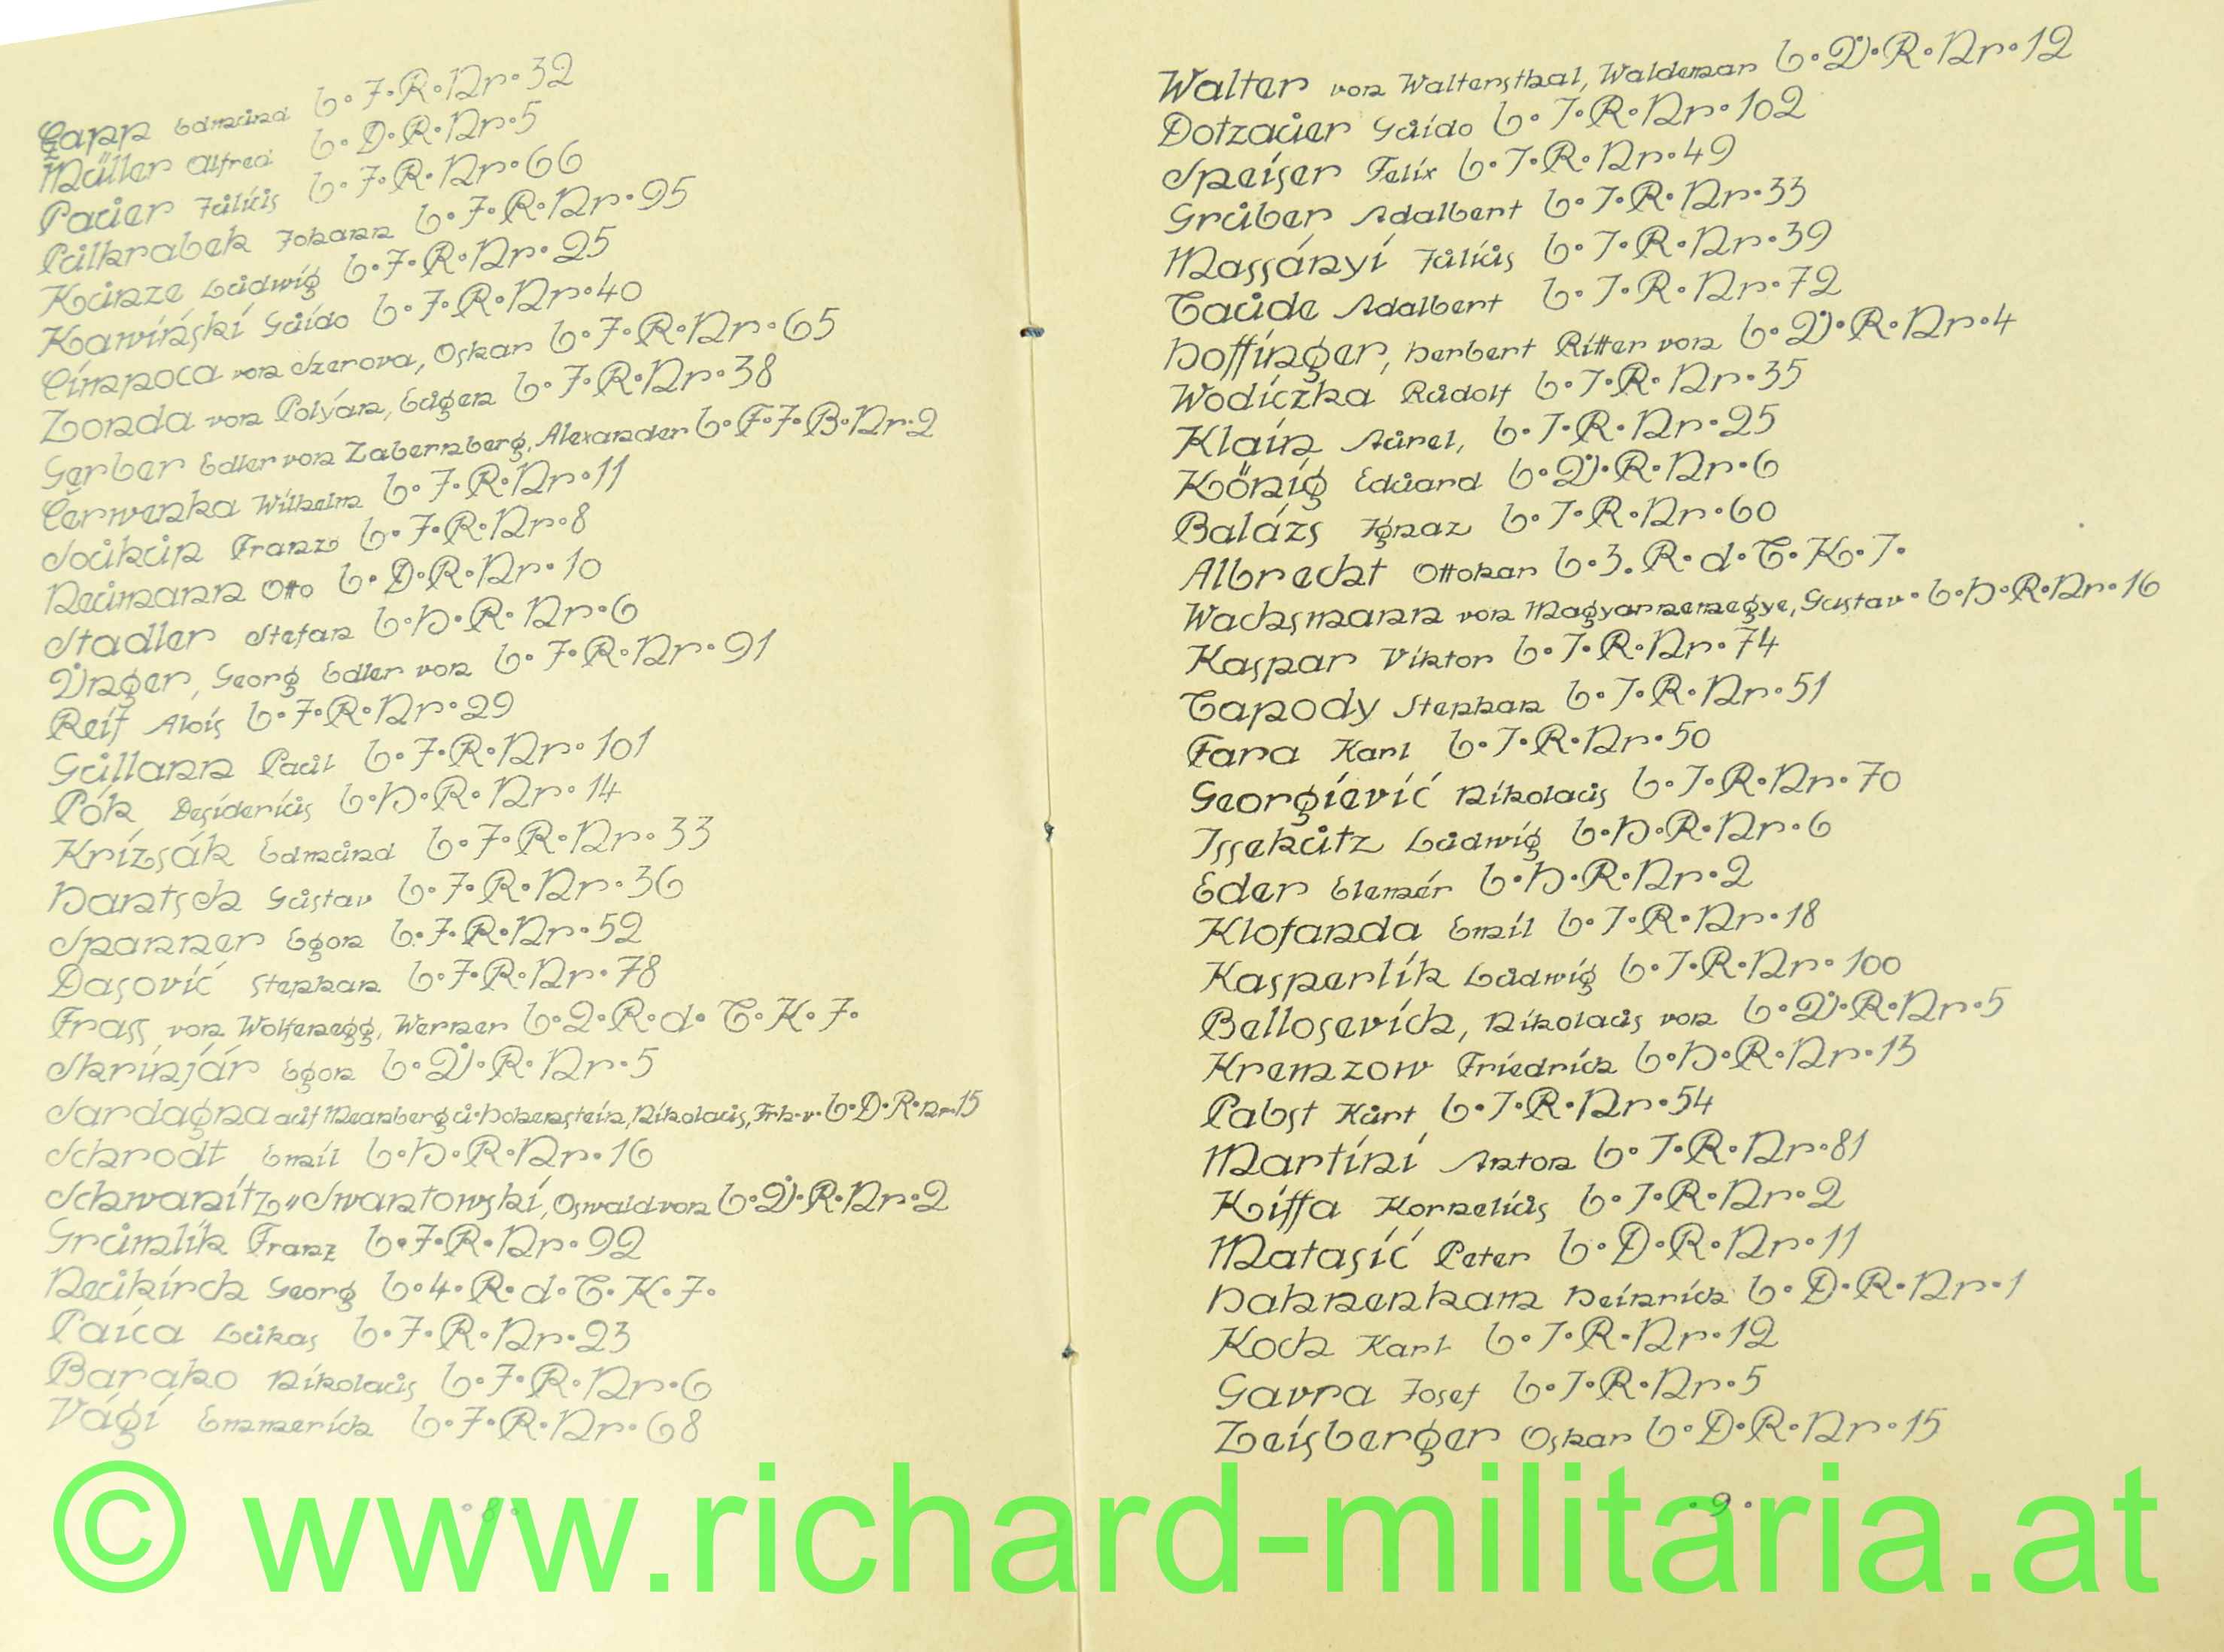 Capp Edmund b. I. R. Nr. 32
Müller Alfred b. D. R. Nr. 5
Pauer Julius b. I. R. Nr. 66
Pulkrabek Johann b. I. R. Nr. 95
Kunze Ludwig b. I. R. Nr. 25
Kawiński Guido b. I. R. Nr. 40
Cimpoca von Szerova, Oskar b. I. R. Nr. 65
Zonda von Polyán, Eugen b. I. R. Nr. 38
Gerber Edler von Zabernberg, Alexander b. F. J. B. Nr. 2
Čerwenka Wilhelm b. I. R. Nr. 11
Soukup Franz b. I. R. Nr. 8
Neumann Otto b. D. R. Nr. 10
Stadler Stefan b. H. R. Nr. 6
Unger, Georg Edler von b. I. R. Nr. 91
Reif Alois b. I. R. Nr. 29
Gullann Paul b. I. R. Nr. 101
Pók Desiderius b. H. R. Nr. 14
Krizsák Edmund b. I. R. Nr. 33
Hantsch Gustav b. I. R. Nr. 36
Spanner Egon b. I. R. Nr. 52
Dasović Stephan b. I. R. Nr. 78
Frass von Wolfenegg, Werner b. 2. R. d. T. K. J.
Skrinjár Egon b. U. R. Nr. 5
Sardagna auf Meanberg u. Hohenstein, Nikolaus, Frh. v. b. D. R. Nr. 15
Schrodt Emil b. H. R. Nr. 16
Schwanitz-Swantowski, Oswald von b. U. R. Nr. 2
Grumlik Franz b. I. R. Nr. 92
Neukirch Georg b. 4. R. d. T. K. J.
Paica Lukas b. I. R. Nr. 23
Barako Nikolaus b. I. R. Nr. 6
Vági Emmerich b. I. R. Nr. 68
. 8 .
Walter von Waltersthal, Waldemar b. U. R. Nr. 12
Dotzauer Guido b. I. R. Nr. 102
Speiser Felix b. I. R. Nr. 49
Gruber Adalbert b. I. R. Nr. 33
Massányi Julius b. I. R. Nr. 39
Taude Adalbert b. I. R. Nr. 72
Hoffinger, Herbert Ritter von b. U. R. Nr. 4
Wodiczka Rudolf b. I. R. Nr. 35
Klain Aurel, b. I. R. Nr. 25
König Eduard b. U. R. Nr. 6
Balázs Ignaz b. I. R. Nr. 60
Albrecht Ottokar b. 3. R. d. T. K. J.
Wachsmann von Magyarnemegye, Gustav. b. H. R. Nr. 16
Kaspar Viktor b. I. R. Nr. 74
Tapody Stephan b. I. R. Nr. 51
Fara Karl b. I. R. Nr. 50
Georgiević Nikolaus b. I. R. Nr. 70
Issekutz Ludwig b. H. R. Nr. 6
Eder Elemér b. H. R. Nr. 2
Klofanda Emil b. I. R. Nr. 18
Kasperlik Ludwig b. I. R. Nr. 100
Bellosevich, Nikolaus von b. U. R. Nr. 5
Kremzow Friedrich b. H. R. Nr. 13
Pabst Kurt b. I. R. Nr. 54
Martini Anton b. I. R. Nr. 81
Kiffa Kornelius b. I. R. Nr. 2
Matasić Peter b. D. R. Nr. 11
Hahnenkam Heinrich b. D. R. Nr. 1
Koch Karl b. I. R. Nr. 12
Gavra Josef b. I. R. Nr. 5
Zeisberger Oskar b. D. R. Nr. 15
. 9 .
© www.richard-militaria.at